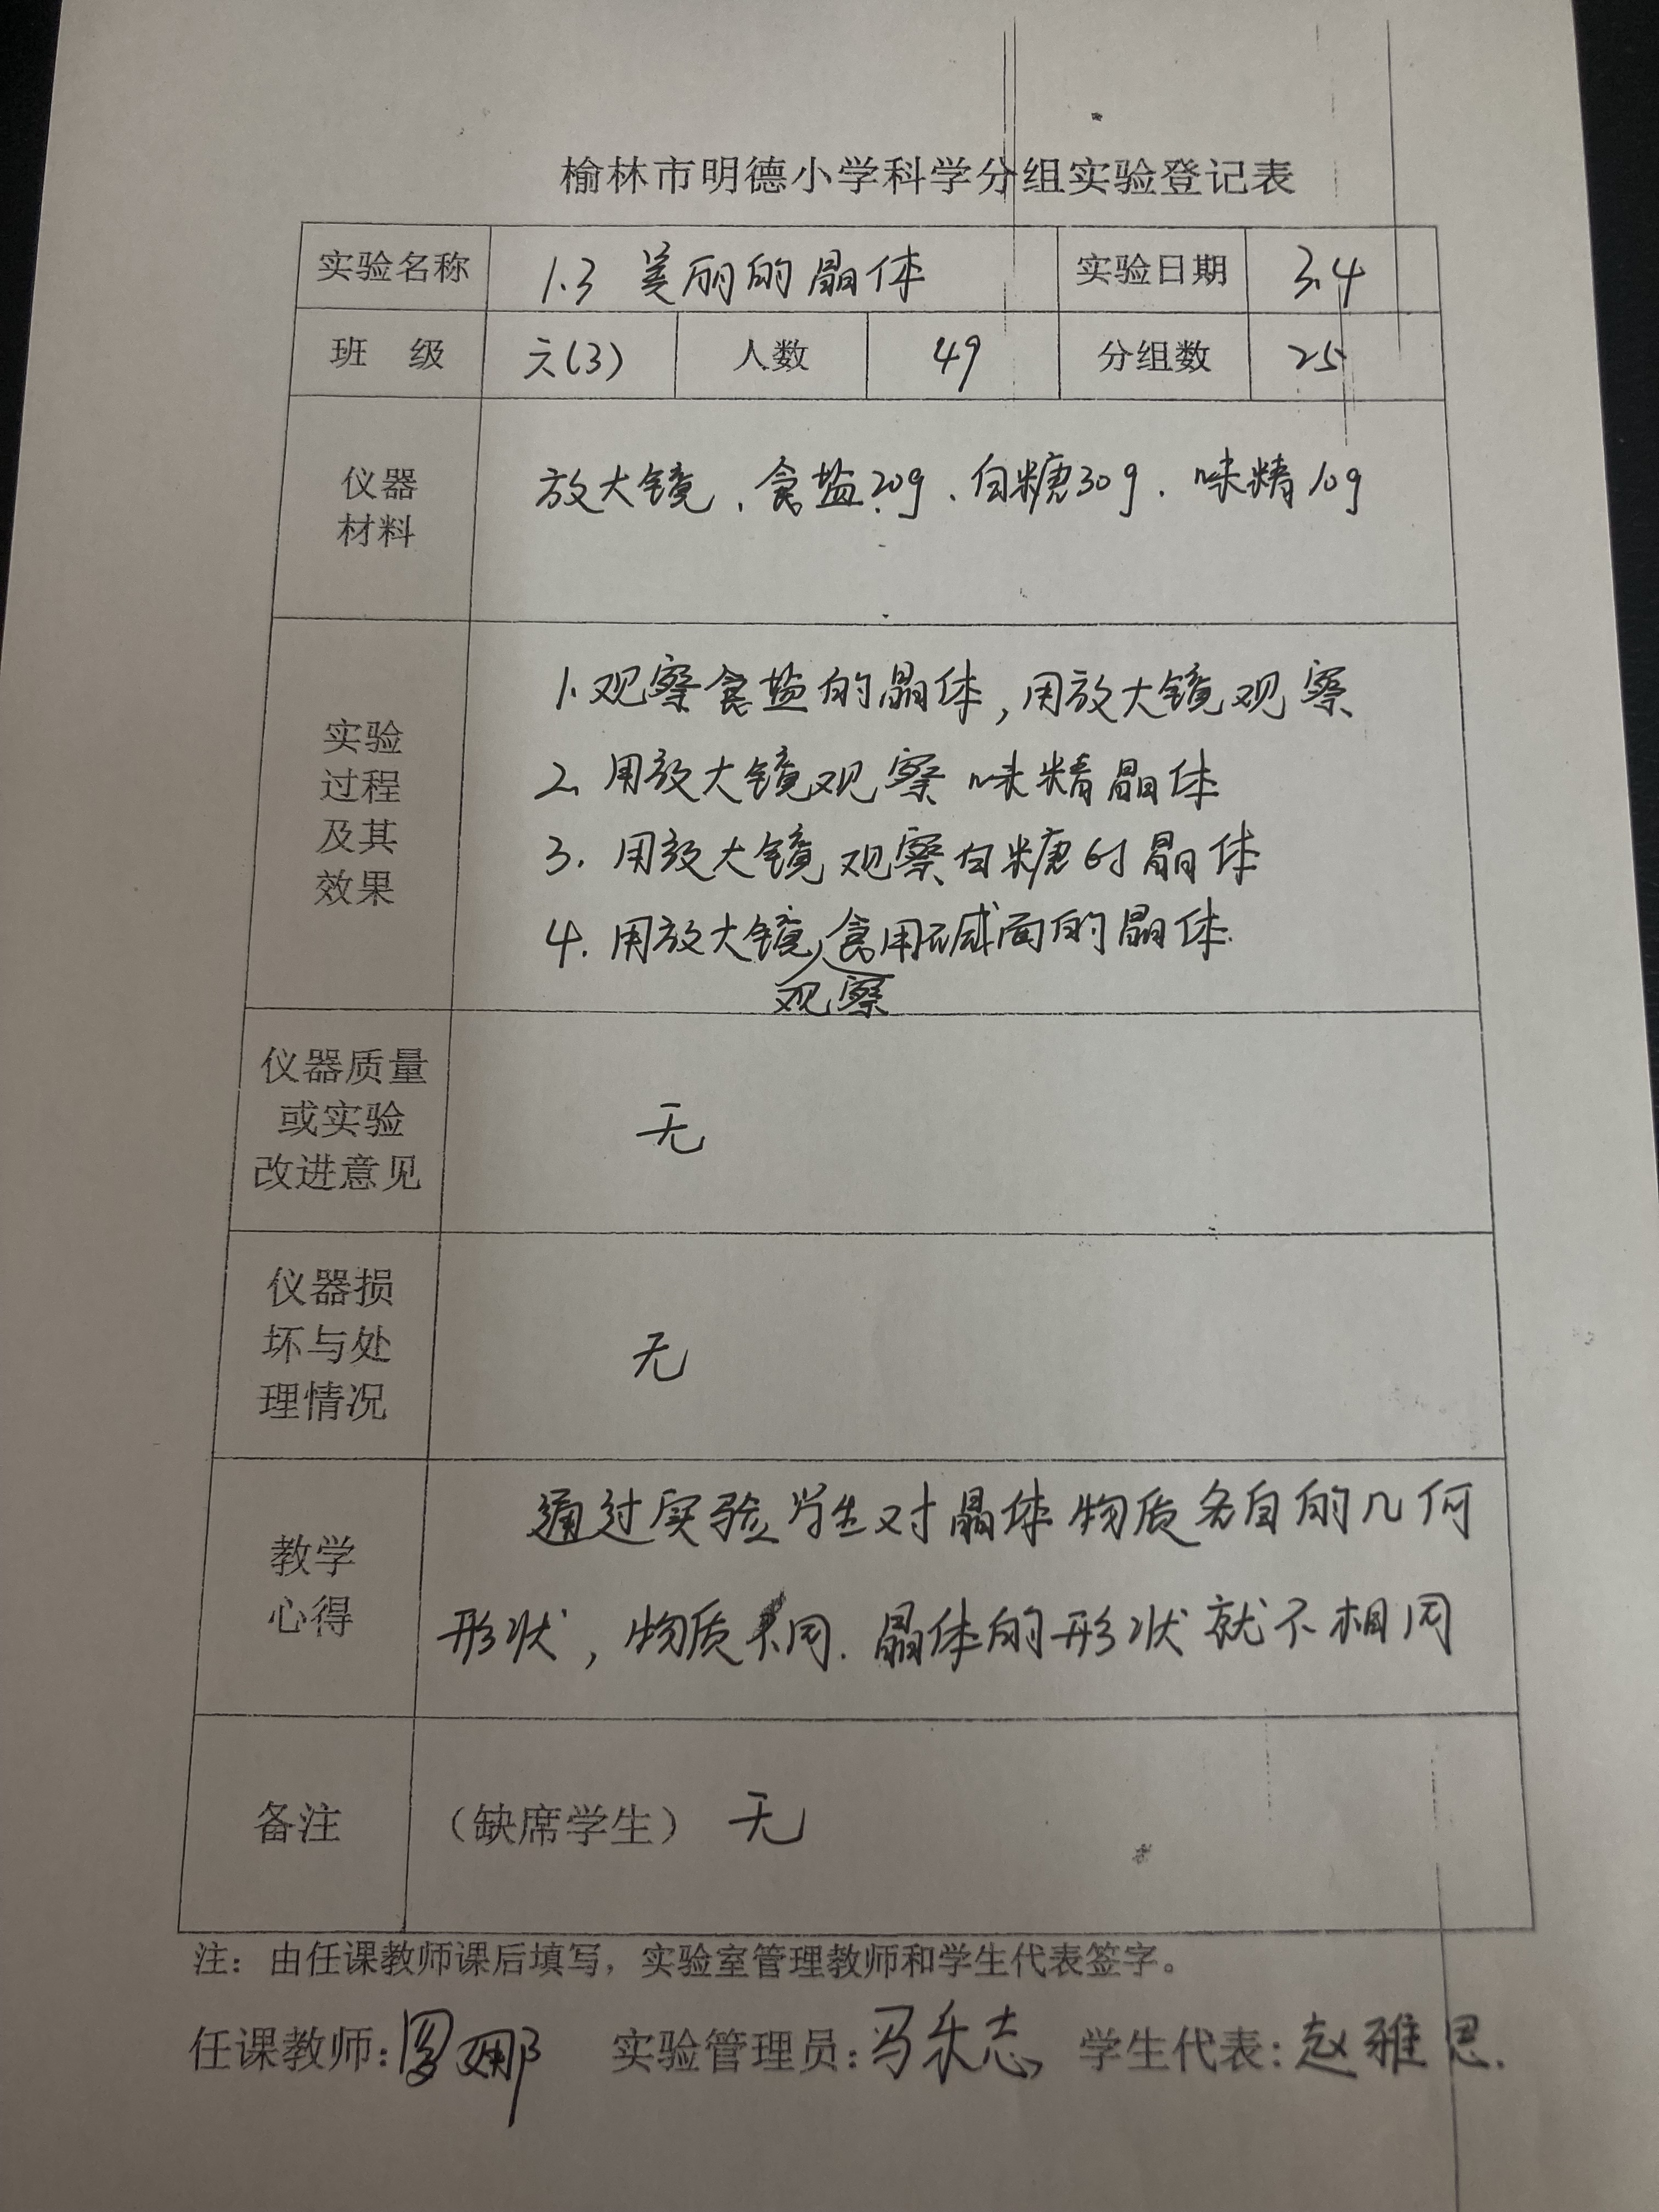 榆林市明德小学科学分组实验登记表
实验名称 1.3 美丽的晶体 实验日期 3.4
班 级 六(3) 人数 49 分组数 25
仪器
材料
放大镜、食盐20g、白糖30g、味精10g
实验
过程
及其
效果
1.观察食盐的晶体,用放大镜观察
2.用放大镜观察味精晶体
3.用放大镜观察白糖的晶体
4.用放大镜观察食用碱面的晶体.
仪器质量
或实验
改进意见
无
仪器损
坏与处
理情况
无
教学
心得
通过实验学生对晶体物质各自的几何
形状,物质不同.晶体的形状就不相同
备注 (缺席学生) 无
注:由任课教师课后填写,实验室管理教师和学生代表签字。
任课教师: 实验管理员:冯 志 学生代表:赵雅思.